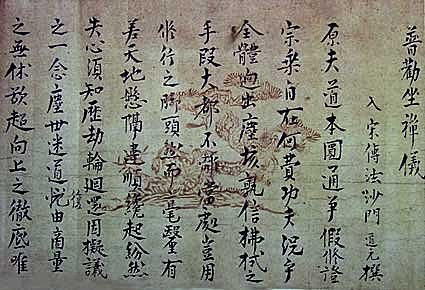 普勸坐禪儀
入宋傳法沙門 道元 撰
原夫道本圓通爭假修證
宗乘自在何費功夫況乎
全體迥出塵埃孰信拂拭之
手段大都不離當處豈用
修行之脚頭然而毫釐有
差天地懸隔違順纔起紛然
失心須知歷劫輪迴還因擬議
之一念塵世迷道復由商量
之無休欲超向上之徹底唯